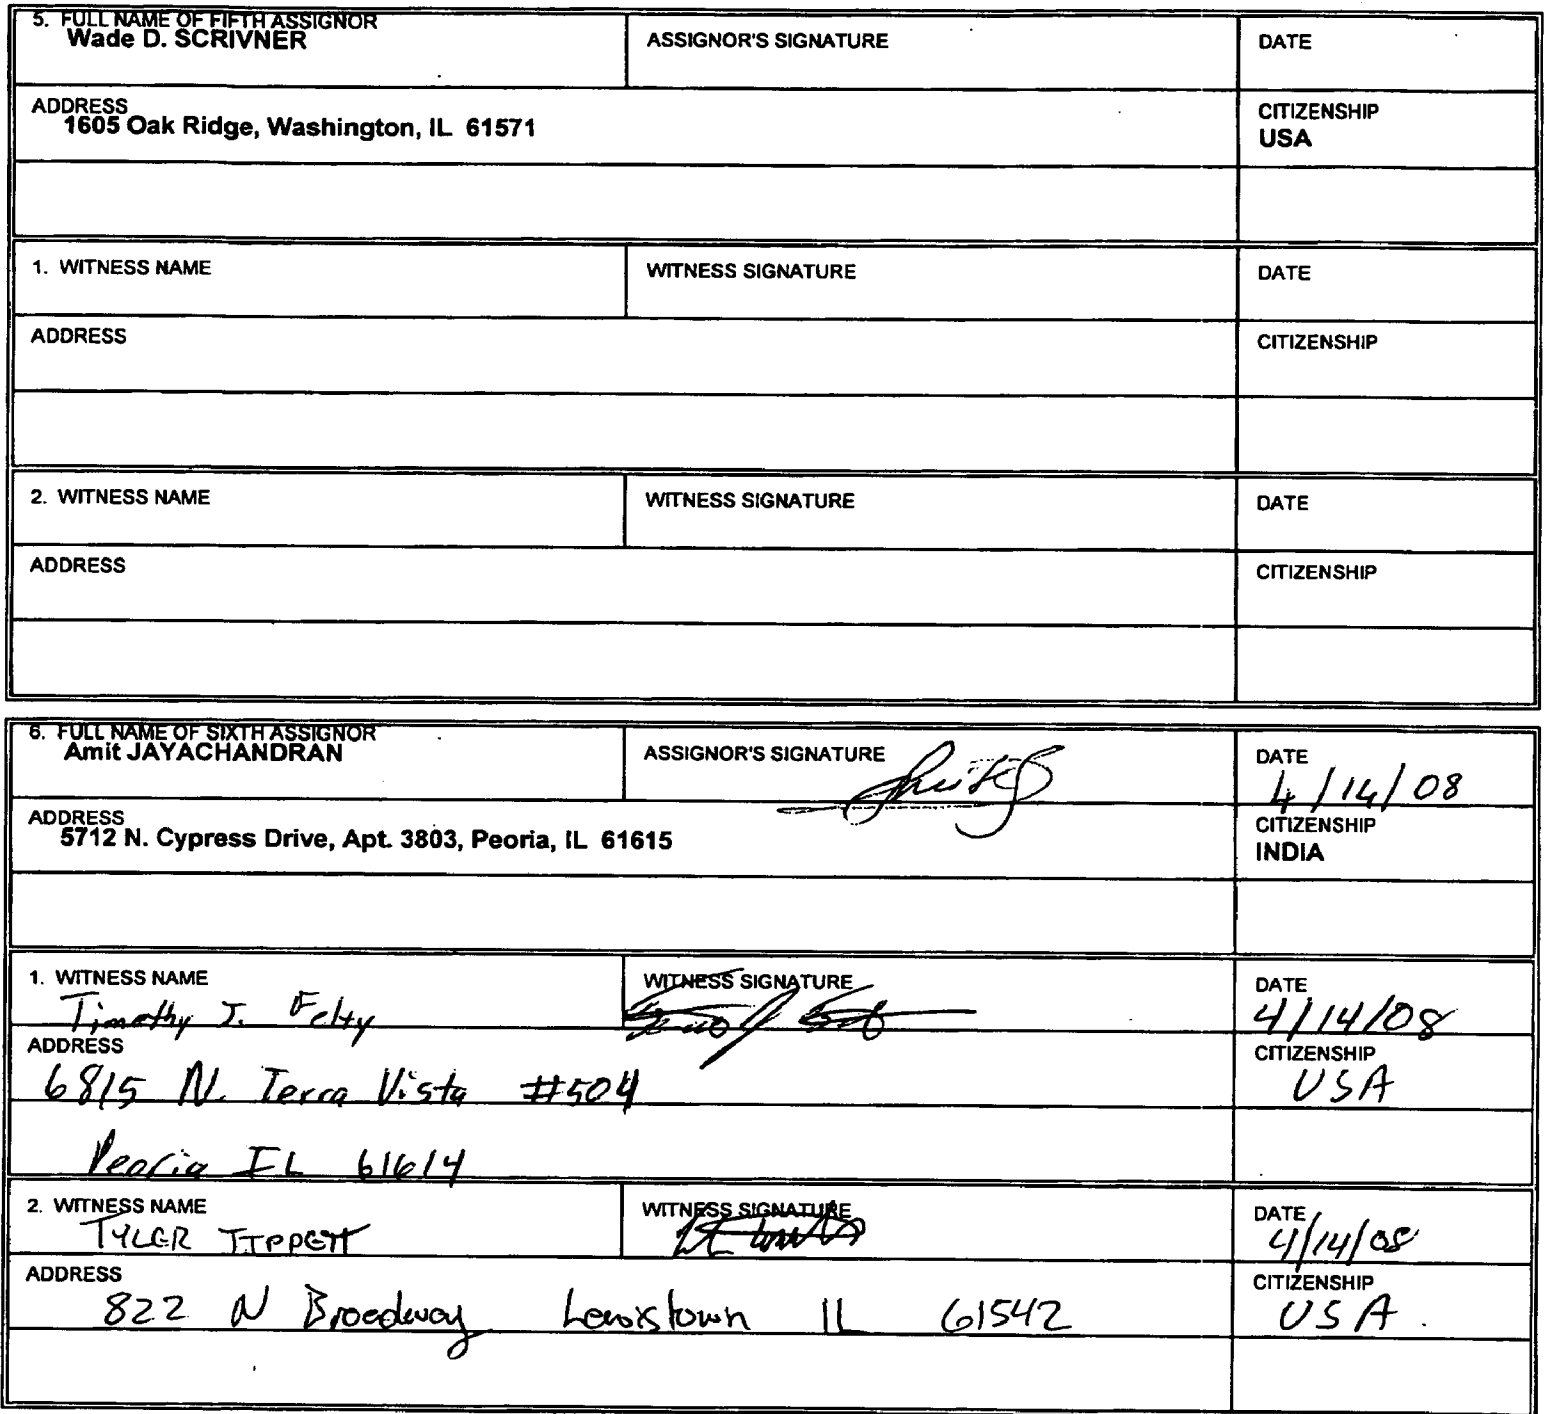 5. FULL NAME OF FIFTH ASSIGNOR
Wade D. SCRIVNER
ASSIGNOR'S SIGNATURE
DATE
ADDRESS
1605 Oak Ridge, Washington, IL 61571
CITIZENSHIP
USA
1. WITNESS NAME
WITNESS SIGNATURE
DATE
ADDRESS
CITIZENSHIP
2. WITNESS NAME
WITNESS SIGNATURE
DATE
ADDRESS
CITIZENSHIP
6. FULL NAME OF SIXTH ASSIGNOR
Amit JAYACHANDRAN
ASSIGNOR'S SIGNATURE
DATE
4/14/08
ADDRESS
5712 N. Cypress Drive, Apt. 3803, Peoria, IL 61615
CITIZENSHIP
INDIA
1. WITNESS NAME
Timothy J. Felty
WITNESS SIGNATURE
DATE
4/14/08
ADDRESS
6815 N. Terra Vista #504
CITIZENSHIP
USA
Peoria IL 61614
2. WITNESS NAME
TYLER TIPPETT
WITNESS SIGNATURE
DATE
4/14/08
ADDRESS
822 N Broadway Lewistown IL 61542
CITIZENSHIP
USA